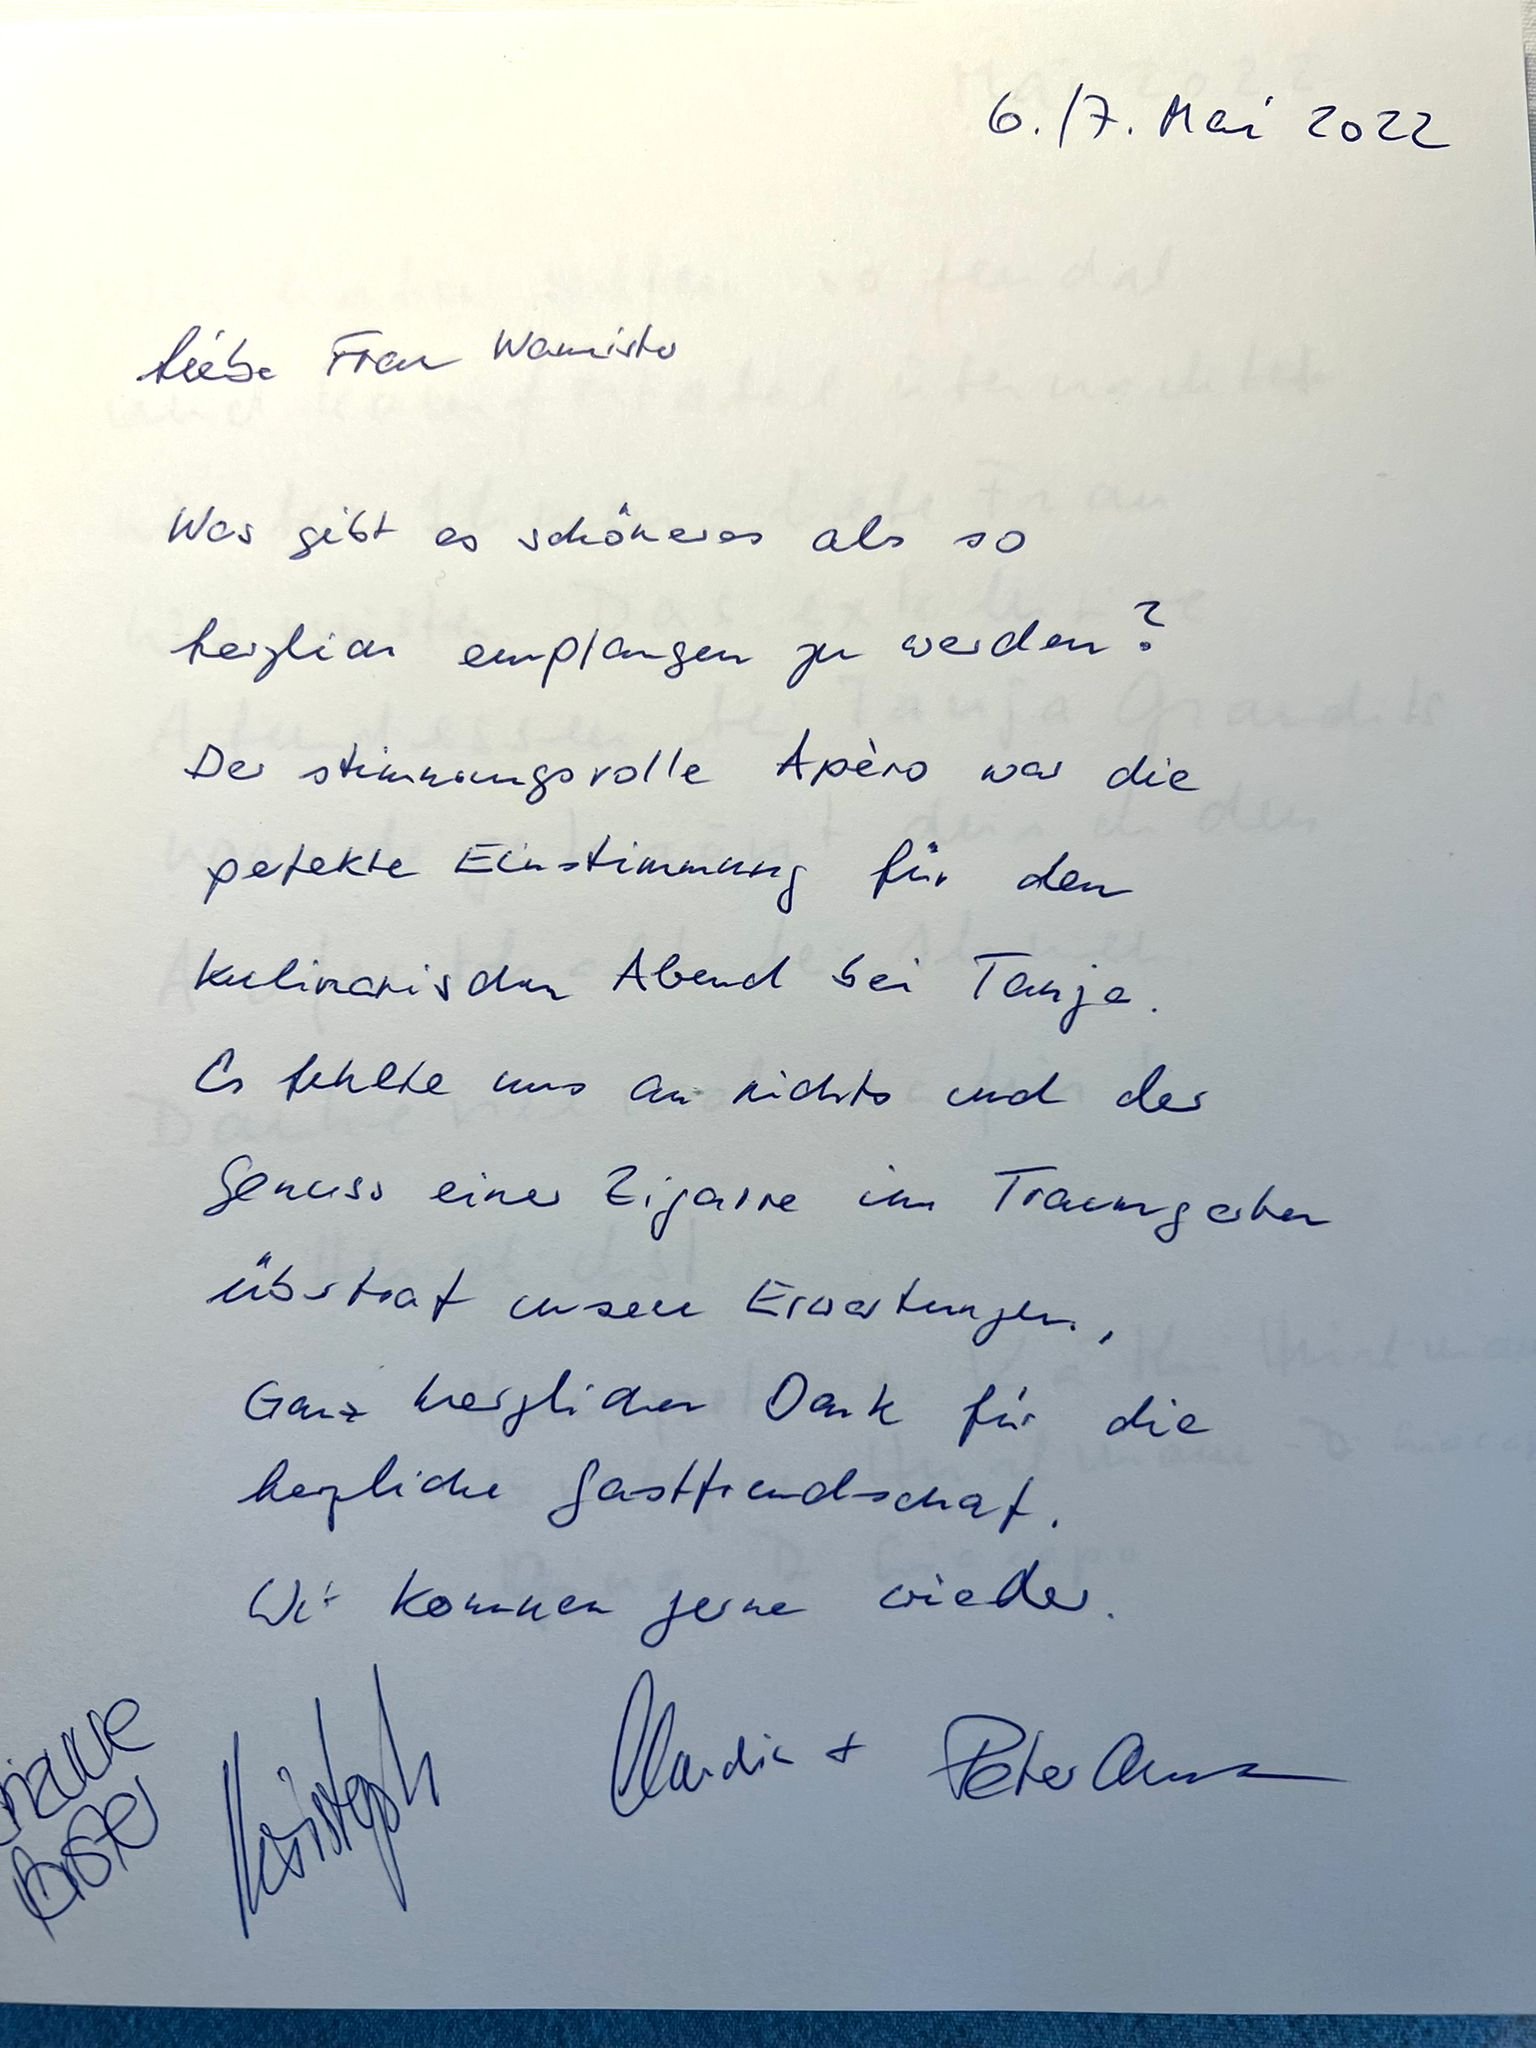 6./7. Mai 2022
Liebe Frau
Was gibt es schöneres als so
herzlich empfangen zu werden?
Der stimmungsvolle Apèro war die
pefekte Einstimmung für den
kulinarischen Abend bei Tanja.
Es fehlte uns an nichts und der
Genuss einer Zigarre im Traumgarten
übertraf unsere Erwartungen,
Ganz herzlichen Dank für die
herzliche Gastfreundschaft.
Wir kommen gerne wieder.
Christoph Claudia + Peter